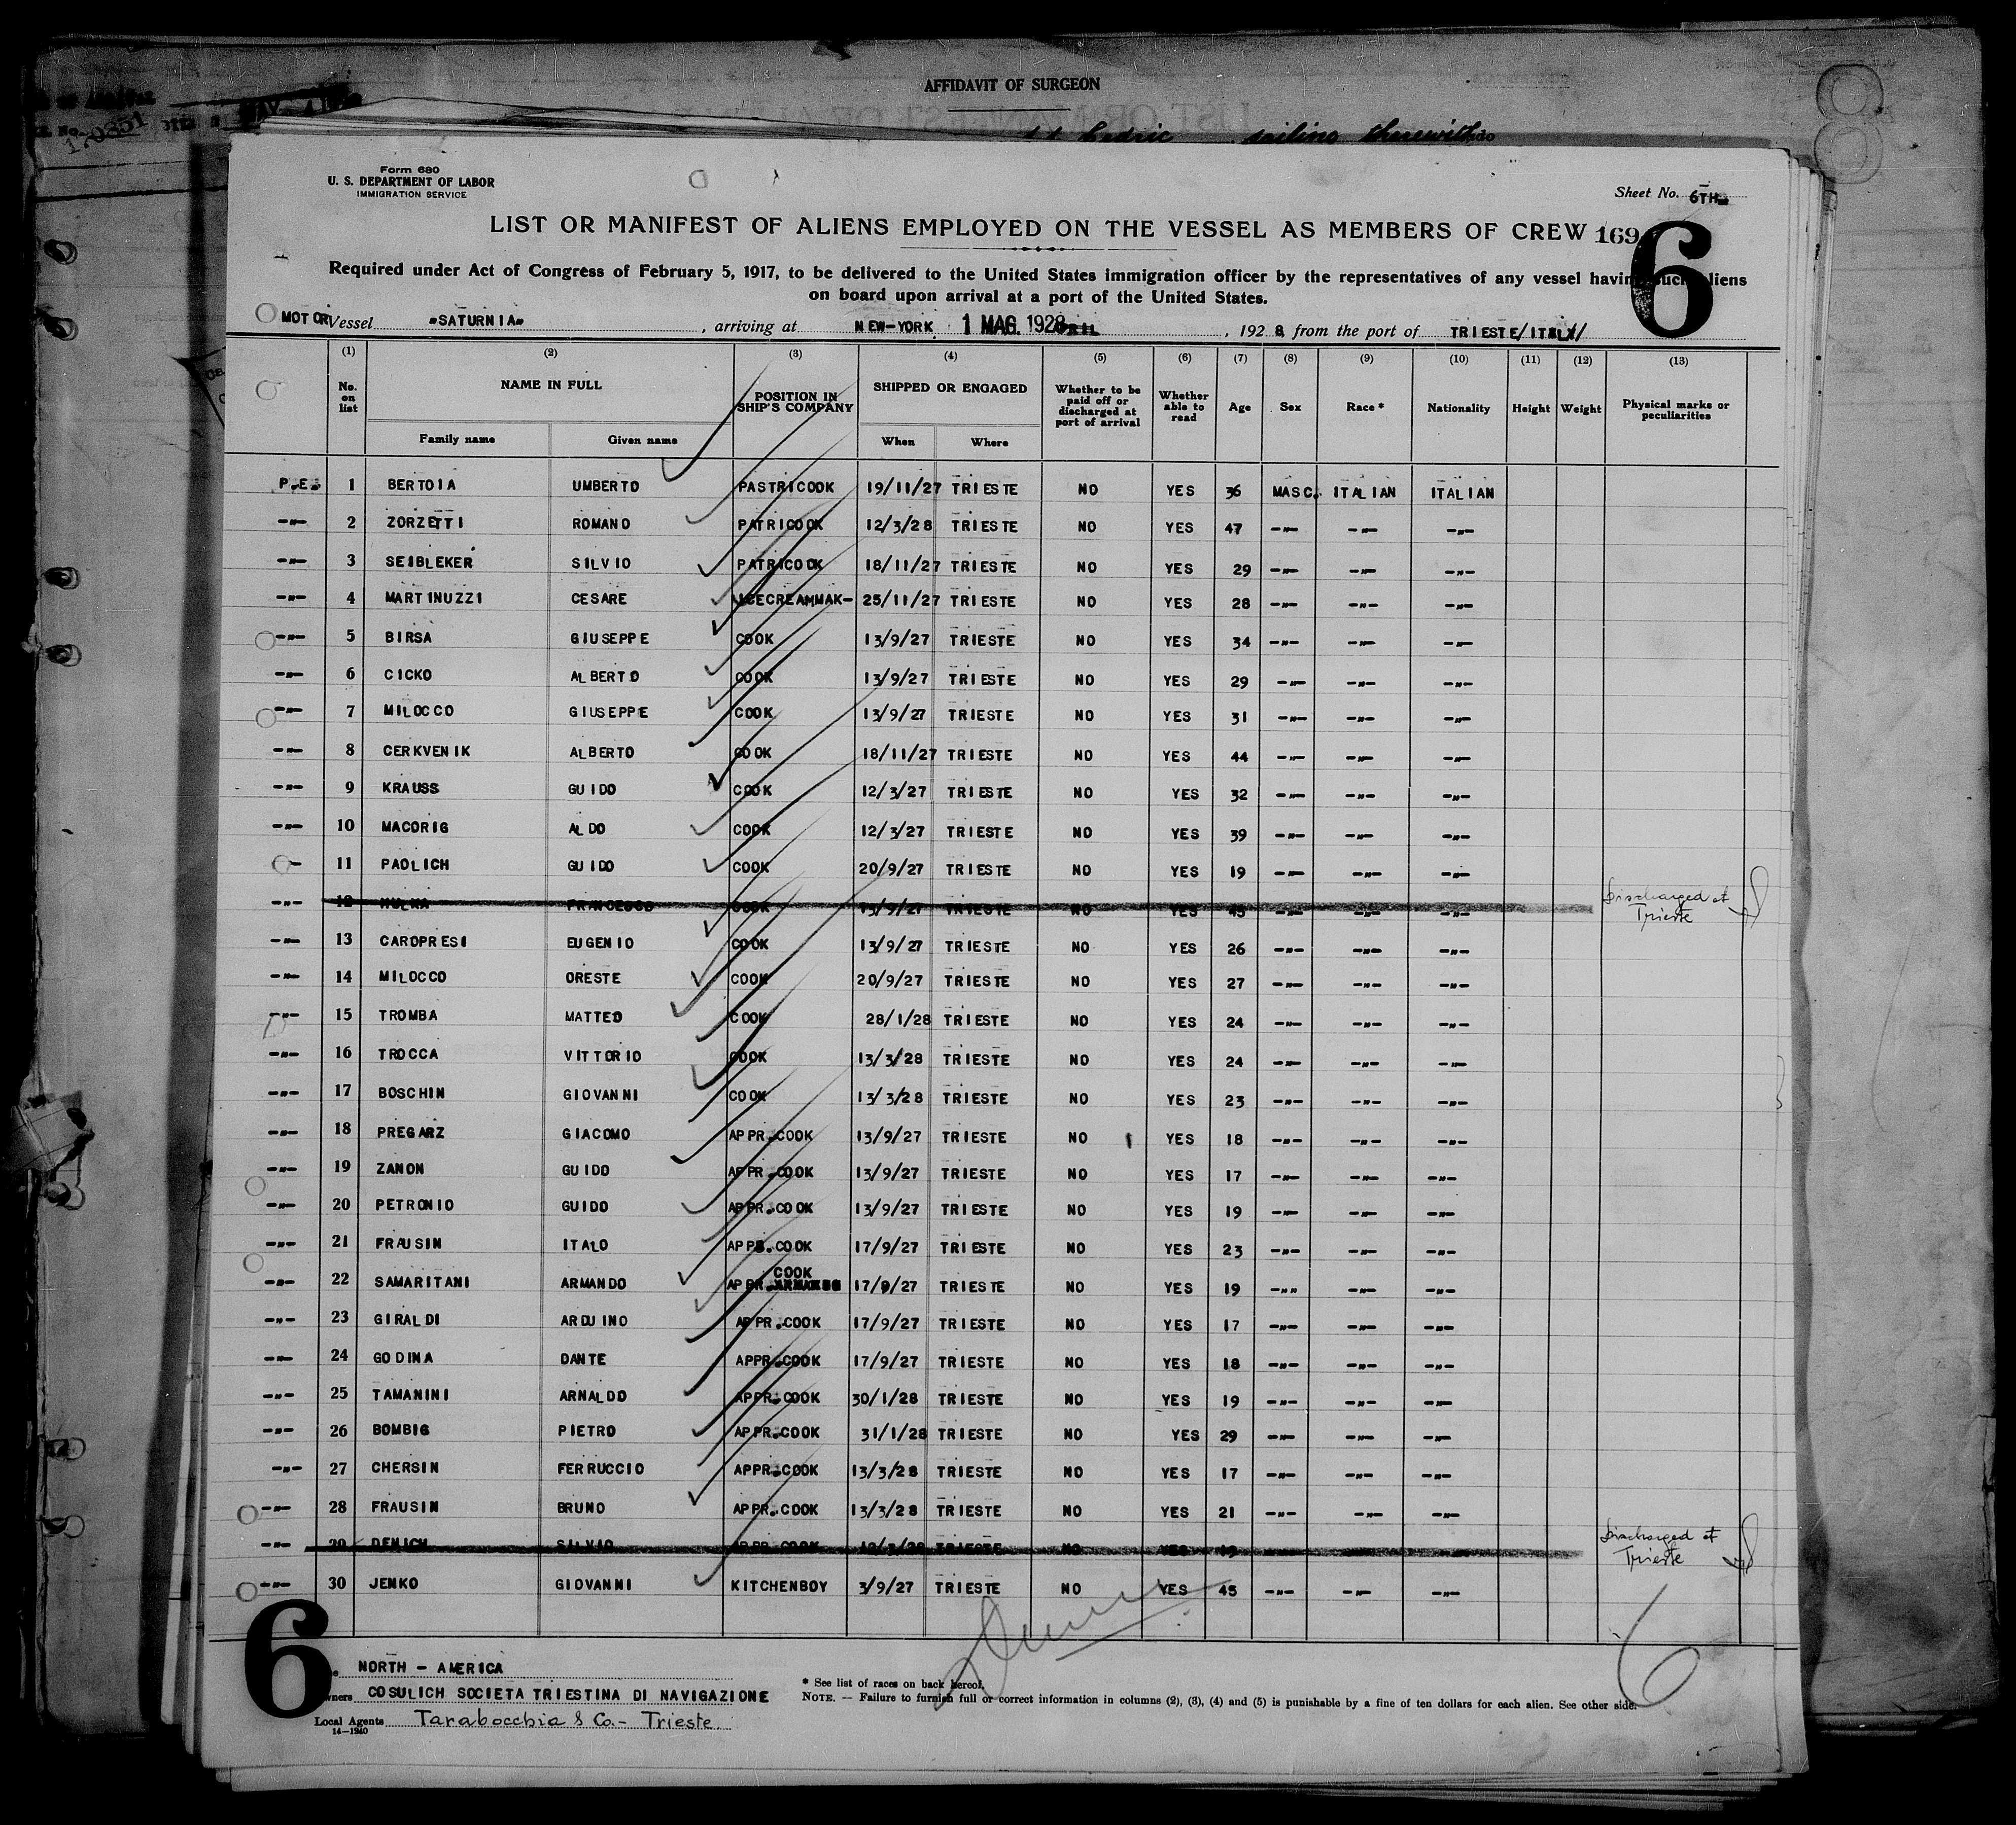 AFFIDAVIT OF SURGEON
sailing therewith
Form 680
U. S. DEPARTMENT OF LABOR
IMMIGRATION SERVICE
Sheet No. 6TH
LIST OR MANIFEST OF ALIENS EMPLOYED ON THE VESSEL AS MEMBERS OF CREW 169
6
Required under Act of Congress of February 5, 1917, to be delivered to the United States immigration officer by the representatives of any vessel having such aliens
on board upon arrival at a port of the United States.
MOTOR Vessel "SATURNIA", arriving at NEW-YORK 1 MAG. 1928, 1928, from the port of TRIESTE/ITALY/
(1) (2) (3) (4) (5) (6) (7) (8) (9) (10) (11) (12) (13)
No. on list NAME IN FULL Family name Given name POSITION IN SHIP'S COMPANY SHIPPED OR ENGAGED When Where Whether to be paid off or discharged at port of arrival Whether able to read Age Sex Race * Nationality Height Weight Physical marks or peculiarities
P.E. 1 BERTOIA UMBERTO PASTRICOOK 19/11/27 TRIESTE NO YES 36 MASC. ITALIAN ITALIAN
-"- 2 ZORZETTI ROMANO PATRICOOK 12/3/28 TRIESTE NO YES 47 -"- -"- -"-
-"- 3 SEIBLEKER SILVIO PATRICOOK 18/11/27 TRIESTE NO YES 29 -"- -"- -"-
-"- 4 MARTINUZZI CESARE ICECREAMMAK- 25/11/27 TRIESTE NO YES 28 -"- -"- -"-
-"- 5 BIRSA GIUSEPPE COOK 13/9/27 TRIESTE NO YES 34 -"- -"- -"-
-"- 6 CICKO ALBERTO COOK 13/9/27 TRIESTE NO YES 29 -"- -"- -"-
-"- 7 MILOCCO GIUSEPPE COOK 13/9/27 TRIESTE NO YES 31 -"- -"- -"-
-"- 8 CERKVENIK ALBERTO COOK 18/11/27 TRIESTE NO YES 44 -"- -"- -"-
-"- 9 KRAUSS GUIDO COOK 12/3/27 TRIESTE NO YES 32 -"- -"- -"-
-"- 10 MACORIG ALDO COOK 12/3/27 TRIESTE NO YES 39 -"- -"- -"-
-"- 11 PAOLICH GUIDO COOK 20/9/27 TRIESTE NO YES 19 -"- -"- -"-
-"- 12 FRANCESCO COOK 13/9/27 TRIESTE NO YES 45 -"- -"- -"- Discharged at Trieste
-"- 13 CAROPRESI EUGENIO COOK 13/9/27 TRIESTE NO YES 26 -"- -"- -"-
-"- 14 MILOCCO ORESTE COOK 20/9/27 TRIESTE NO YES 27 -"- -"- -"-
-"- 15 TROMBA MATTEO COOK 28/1/28 TRIESTE NO YES 24 -"- -"- -"-
-"- 16 TROCCA VITTORIO COOK 13/3/28 TRIESTE NO YES 24 -"- -"- -"-
-"- 17 BOSCHIN GIOVANNI COOK 13/3/28 TRIESTE NO YES 23 -"- -"- -"-
-"- 18 PREGARZ GIACOMO APPR.COOK 13/9/27 TRIESTE NO YES 18 -"- -"- -"-
-"- 19 ZANON GUIDO APPR.COOK 13/9/27 TRIESTE NO YES 17 -"- -"- -"-
-"- 20 PETRONIO GUIDO APPR.COOK 13/9/27 TRIESTE NO YES 19 -"- -"- -"-
-"- 21 FRAUSIN ITALO APPR.COOK 17/9/27 TRIESTE NO YES 23 -"- -"- -"-
-"- 22 SAMARITANI ARMANDO APPR. COOK 17/9/27 TRIESTE NO YES 19 -"- -"- -"-
-"- 23 GIRALDI ARDUINO APPR.COOK 17/9/27 TRIESTE NO YES 17 -"- -"- -"-
-"- 24 GODINA DANTE APPR.COOK 17/9/27 TRIESTE NO YES 18 -"- -"- -"-
-"- 25 TAMANINI ARNALDO APPR.COOK 30/1/28 TRIESTE NO YES 19 -"- -"- -"-
-"- 26 BOMBIG PIETRO APPR.COOK 31/1/28 TRIESTE NO YES 29 -"- -"- -"-
-"- 27 CHERSIN FERRUCCIO APPR.COOK 13/3/28 TRIESTE NO YES 17 -"- -"- -"-
-"- 28 FRAUSIN BRUNO APPR.COOK 13/3/28 TRIESTE NO YES 21 -"- -"- -"-
-"- 29 DENICH SILVIO APPR.COOK TRIESTE NO YES 19 Discharged at Trieste
-"- 30 JENKO GIOVANNI KITCHENBOY 3/9/27 TRIESTE NO YES 45 -"- -"- -"-
6
6
NORTH - AMERICA
Owners COSULICH SOCIETA TRIESTINA DI NAVIGAZIONE
Local Agents Tarabocchia & Co. - Trieste.
14-1240
* See list of races on back hereof.
NOTE. — Failure to furnish full or correct information in columns (2), (3), (4) and (5) is punishable by a fine of ten dollars for each alien. See other side.